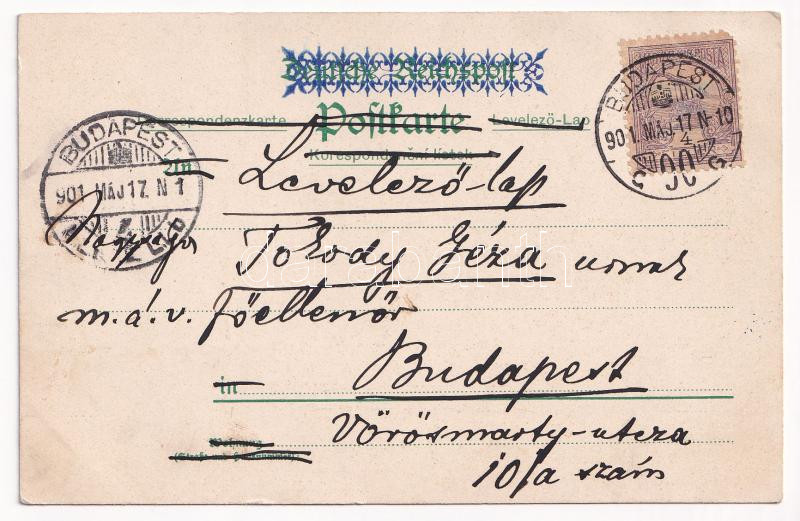 Deutsche Reichspost
Correspondenzkarte Postkarte Levelező-Lap
Korespondenční lístek
BUDAPEST
901 MÁJ 17. N 10
4
BUDAPEST
901 MÁJ 17. N 1
An Levelező-lap
Nagysága Tolody Géza urnak
m.á.v. főellenőr
in Budapest
Vörösmarty-utcza
10/a szám
darabanth